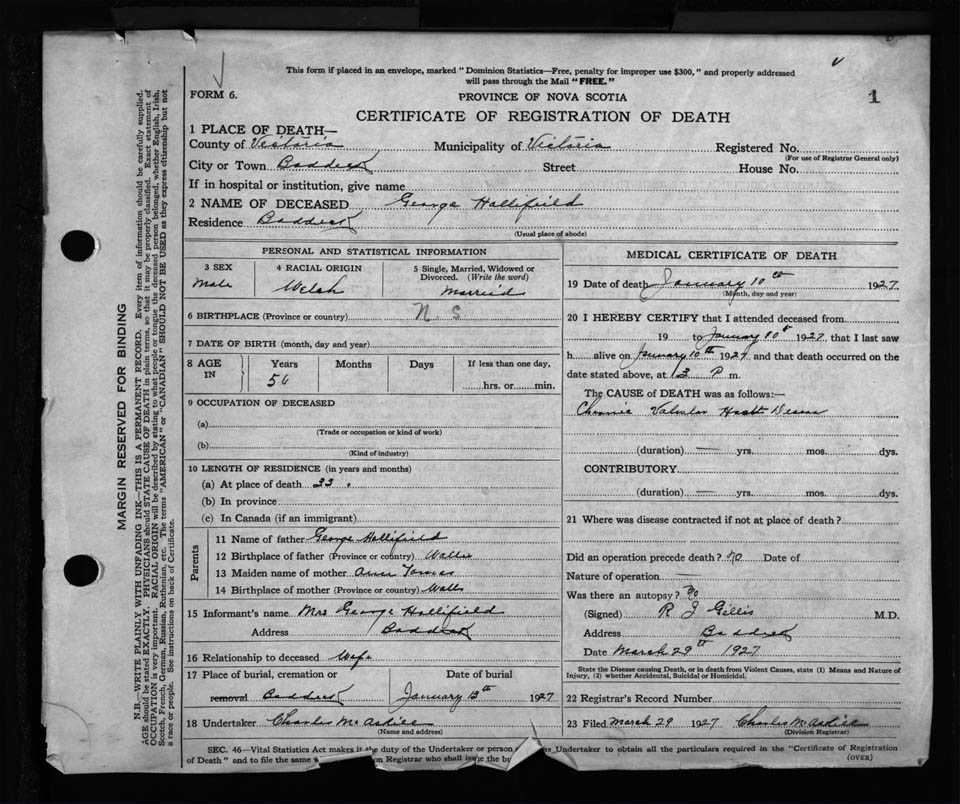 This form if placed in an envelope, marked "Dominion Statistics—Free, penalty for improper use $300," and properly addressed
will pass through the Mail "FREE."
FORM 6.
PROVINCE OF NOVA SCOTIA
1
CERTIFICATE OF REGISTRATION OF DEATH
1 PLACE OF DEATH—
County of Victoria Municipality of Victoria Registered No.
(For use of Registrar General only)
City or Town Baddeck Street House No.
If in hospital or institution, give name
2 NAME OF DECEASED George Hollifield
Residence Baddeck
(Usual place of abode)
PERSONAL AND STATISTICAL INFORMATION
3 SEX 4 RACIAL ORIGIN 5 Single, Married, Widowed or
Divorced. (Write the word)
Male Welsh Married
6 BIRTHPLACE (Province or country) N. S.
7 DATE OF BIRTH (month, day and year)
8 AGE IN Years Months Days If less than one day,
56 hrs. or min.
9 OCCUPATION OF DECEASED
(a)
(Trade or occupation or kind of work)
(b)
(Kind of industry)
10 LENGTH OF RESIDENCE (in years and months)
(a) At place of death 33
(b) In province
(c) In Canada (if an immigrant)
Parents
11 Name of father George Hollifield
12 Birthplace of father (Province or country)
13 Maiden name of mother Ann
14 Birthplace of mother (Province or country)
15 Informant's name Mrs George Hollifield
Address Baddeck
16 Relationship to deceased Wife
17 Place of burial, cremation or Date of burial
removal Baddeck January 13th 1927
18 Undertaker Charles McAskill
(Name and address)
MEDICAL CERTIFICATE OF DEATH
19 Date of death January 10th 1927
(Month, day and year)
20 I HEREBY CERTIFY that I attended deceased from
19 to January 10th 1927, that I last saw
h alive on January 10th 1927 and that death occurred on the
date stated above, at P m.
The CAUSE of DEATH was as follows:—
Chronic Valvular Heart Disease
(duration) — yrs. mos. dys.
CONTRIBUTORY
(duration) — yrs. mos. dys.
21 Where was disease contracted if not at place of death?
Did an operation precede death? No Date of
Nature of operation —
Was there an autopsy? No
(Signed) R J Gillis M.D.
Address Baddeck
Date March 29th 1927
State the Disease causing Death, or in death from Violent Causes, state (1) Means and Nature of
Injury, (2) whether Accidental, Suicidal or Homicidal.
22 Registrar's Record Number
23 Filed March 29 1927 Charles McAskill
(Division Registrar)
SEC. 46—Vital Statistics Act makes it the duty of the Undertaker or person as Undertaker to obtain all the particulars required in the "Certificate of Registration
of Death" and to file the same on Registrar who shall issue the
(OVER)
MARGIN RESERVED FOR BINDING
N.B.—WRITE PLAINLY WITH UNFADING INK—THIS IS A PERMANENT RECORD. Every item of information should be carefully supplied.
AGE should be stated EXACTLY. PHYSICIANS should STATE CAUSE OF DEATH in plain terms, so that it may be properly classified. Exact statement of
OCCUPATION is very important. RACIAL ORIGIN will be described by stating to what people or tongue the deceased person belonged, whether English, Irish,
Scotch, French, German, Russian, Ruthenian, etc. The terms "AMERICAN" or "CANADIAN" SHOULD NOT BE USED as they express citizenship but not
a race or people. See instructions on back of Certificate.